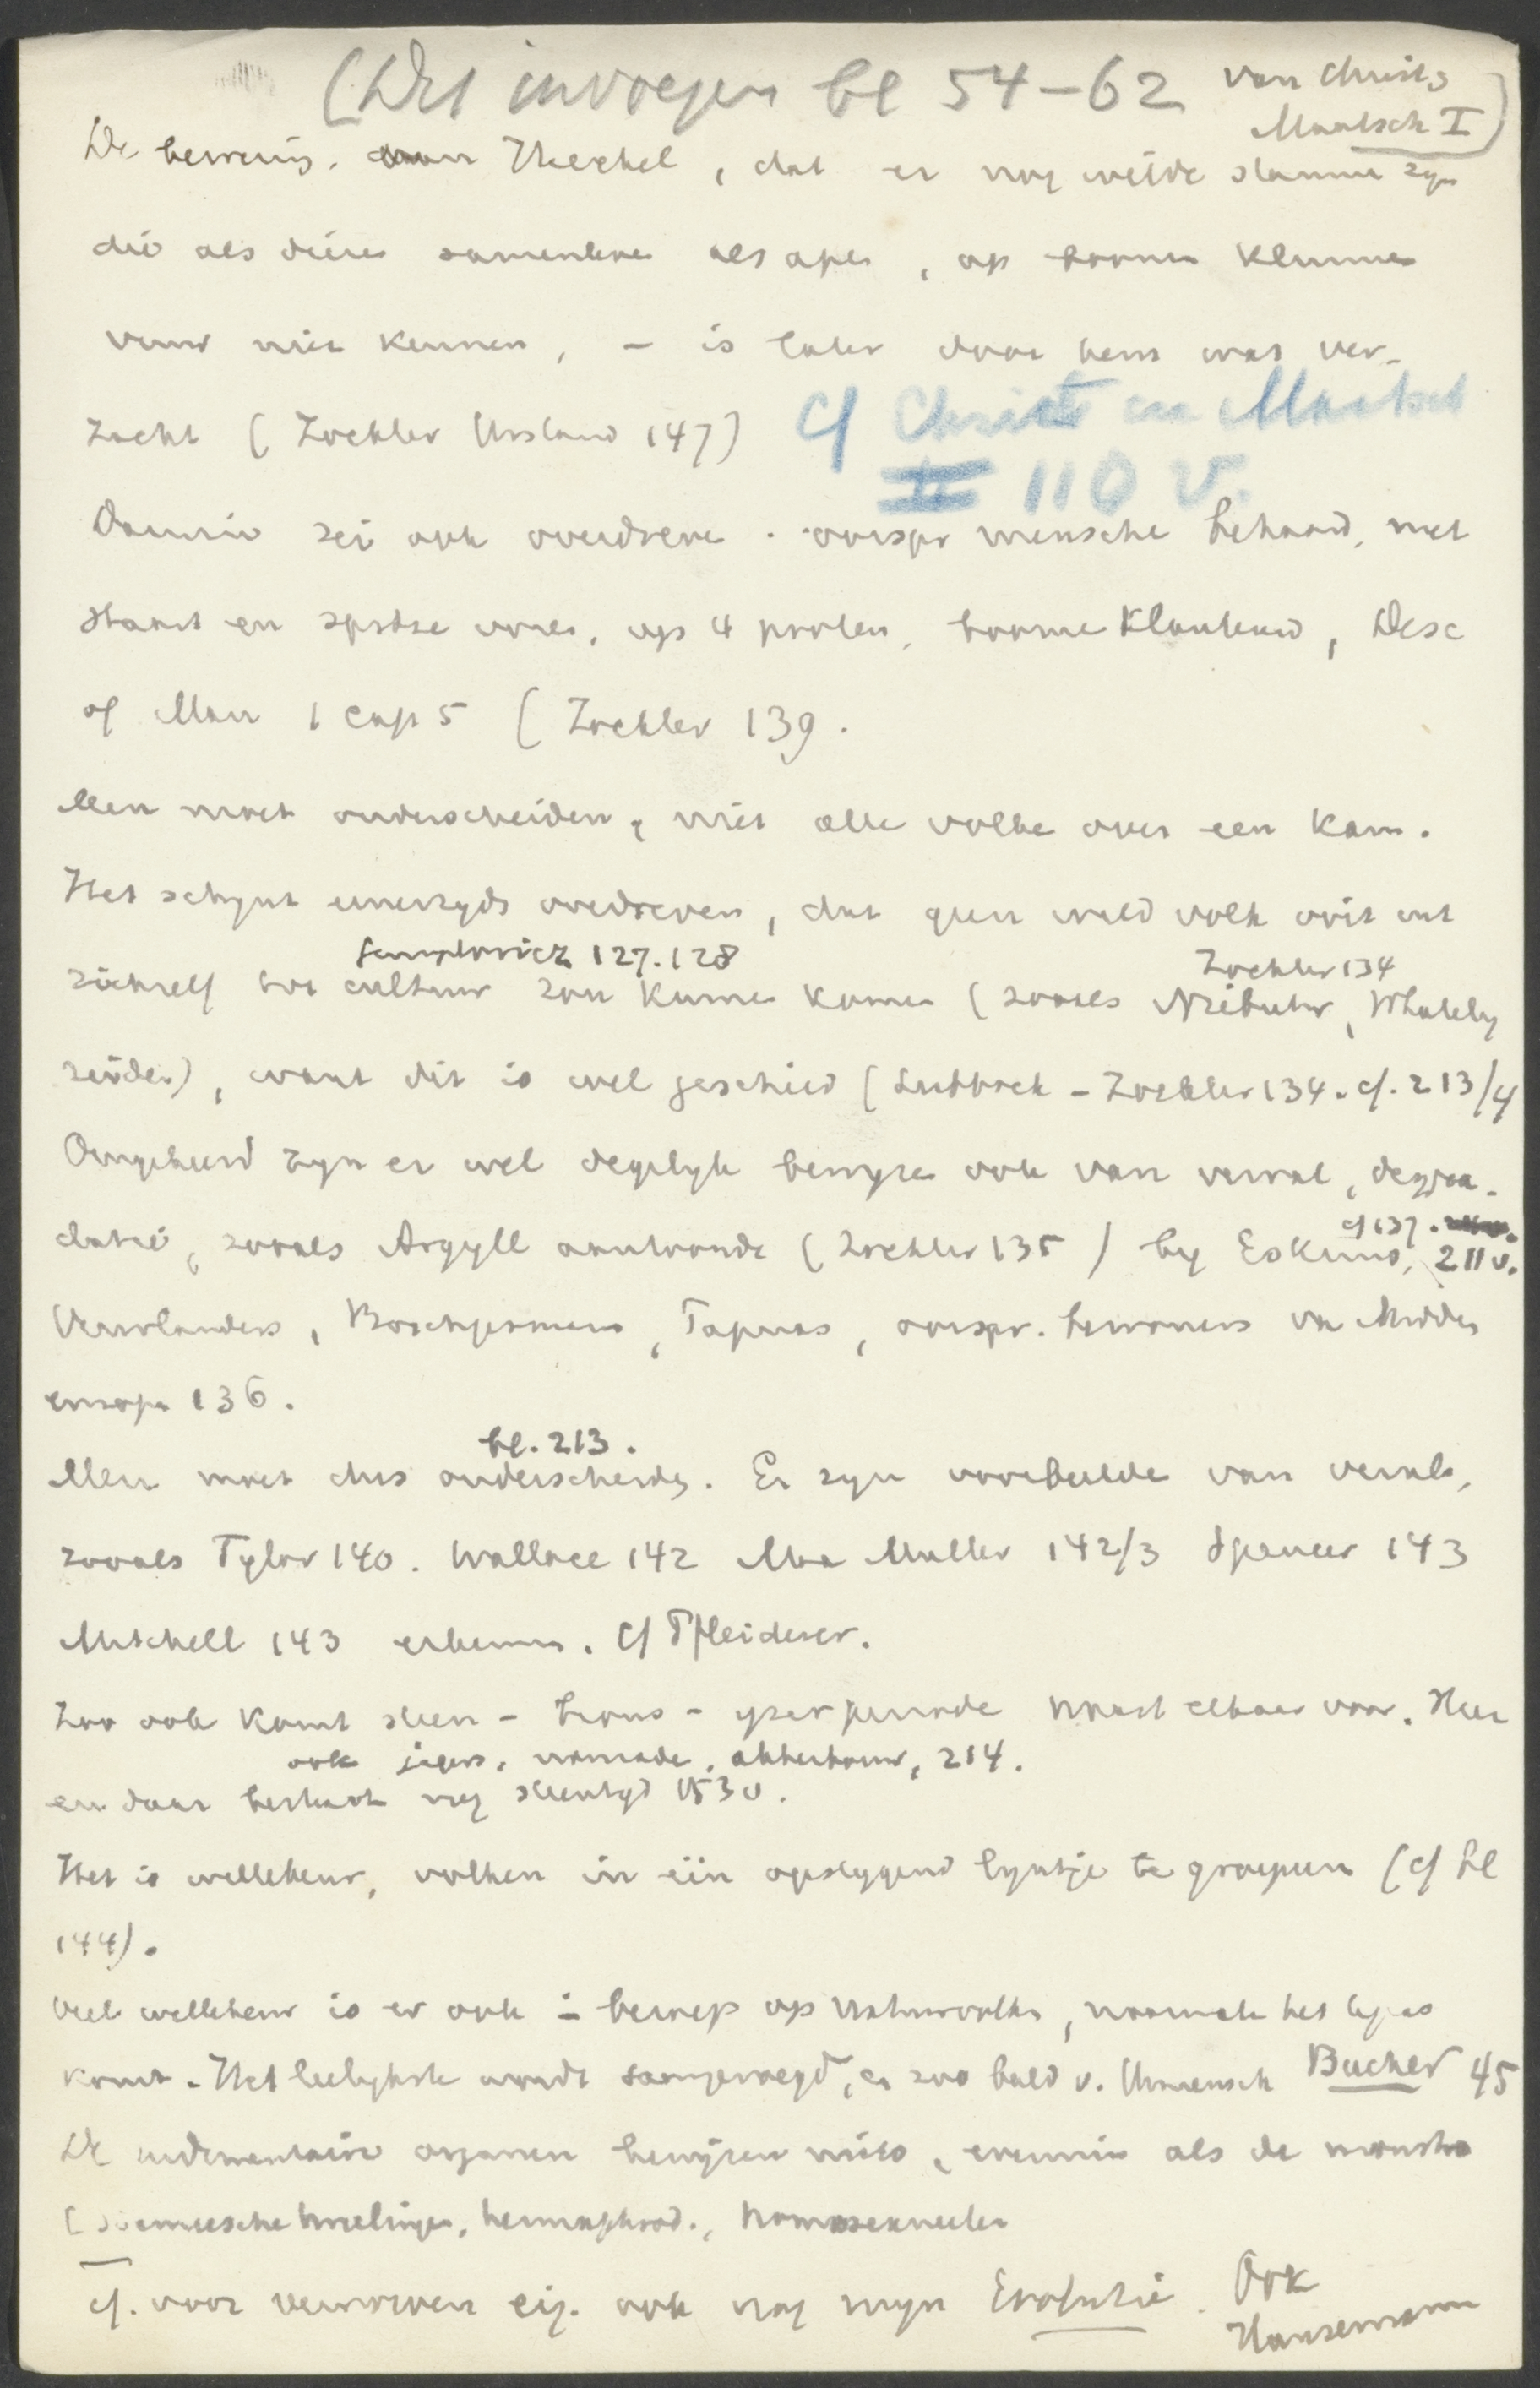 (Dit invoegen bl 54-62 van Christ.
Maatsch I)
De bewering van Haeckel, dat er nog wilde stammen zyn
die als dieren samenleven als apen, op boomen klimmen
vuur niet kennen, - is later door hem wat ver-
zacht (Zöckler Urstand 147)
Cf Christ en Maatsch
110 v.
Darwin zei ook overdreven. oorspr menschen behaard, met
staart en spitse ooren, op 4 pooten, boomen klauterend, Desc
of Man 1 cap 5 (Zöckler 139.
Men moet onderscheiden, niet alle volken over een kam.
Het schynt eenerzyds overdreven, dat geen wild volk ooit uit
Gumplovicz 127.128
Zöckler 134
zichzelf tot cultuur zou kunnen komen (zooals Niebuhr, Whately
zeiden), want dit is wel geschied (Lubbock - Zöckler 134. cf. 213/4
Omgekeerd zyn er wel degelyk bewyzen ook van verval, degra-
cf 137.
datie, zooals Argyll aantoonde (Zöckler 135) by Eskimo, 211 v.
Vuurlanders, Boschjesmans, Tapuas, oorspr. bewoners van Midden
europa 136.
bl. 213.
Men moet dus onderscheiden. Er zyn voorbeelden van verval,
zooals Tylor 140. Wallace 142 Max Muller 142/3 Spencer 143
Mitchell 143 erkennen. Cf Pfleiderer.
Zoo ook komt steen - brons - yzerperiode naast elkaar voor. Hier
ook jagers, nomaden, akkerbouw, 214.
en daar bestaat nog steentyd 153 v.
Het is willekeur, volken in één opstygend lyntje te groepeeren (cf bl
144).
Veel willekeur is er ook in beroep op natuurvolken, naarmate het te pas
komt. Het leelykste wordt saamgevoegd, en zoo beeld v. Urmensch Bucher 45
De rudimentaire organen bewijzen niets, evenmin als de monstra
(Siameesche tweelingen, hermaphrod., homosexueelen
cf. voor verworven eig. ook nog myn Evolutie. Ook
Hansemann